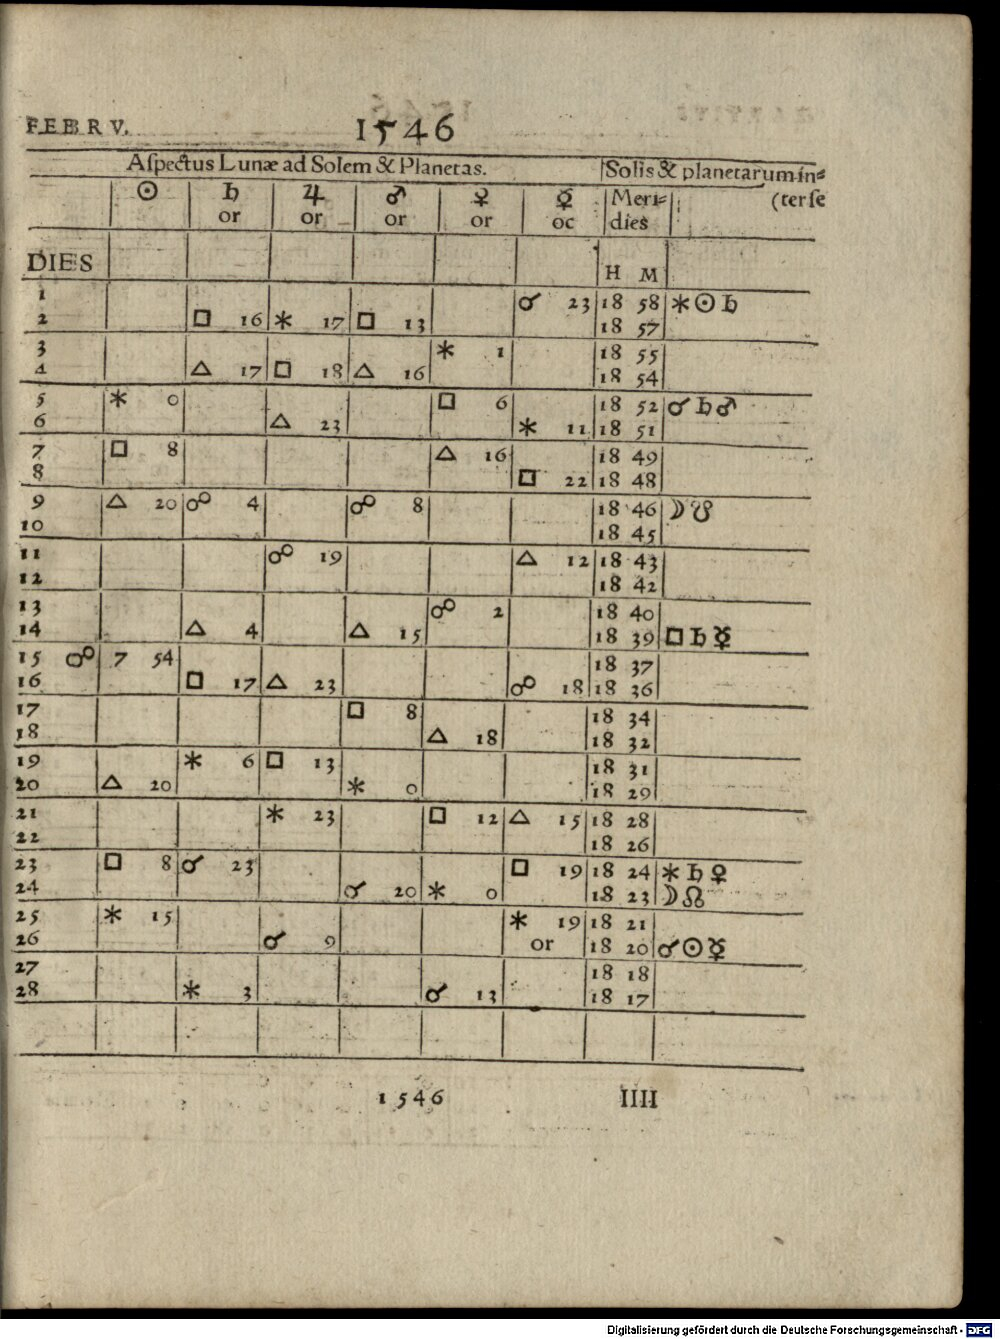 FEBRV. 1546
Aſpectus Lunæ ad Solem & Planetas. Solis & planetarum in=
☉ ♄ ♃ ♂ ♀ ☿ Meri= (ter ſe
or or or or oc dies
DIES H M
1 ☌ 23 18 58 ⚹ ☉ ♄
2 □ 16 ⚹ 17 □ 13 18 57
3 ⚹ 1 18 55
4 △ 17 □ 18 △ 16 18 54
5 ⚹ 0 □ 6 18 52 ☌ ♄ ♂
6 △ 23 ⚹ 11 18 51
7 □ 8 △ 16 18 49
8 □ 22 18 48
9 △ 20 ☍ 4 ☍ 8 18 46 ☽ ☋
10 18 45
11 ☍ 19 △ 12 18 43
12 18 42
13 ☍ 2 18 40
14 △ 4 △ 15 18 39 □ ♄ ☿
15 ☍ 7 54 18 37
16 □ 17 △ 23 ☍ 18 18 36
17 □ 8 18 34
18 △ 18 18 32
19 ⚹ 6 □ 13 18 31
20 △ 20 ⚹ 0 18 29
21 ⚹ 23 □ 12 △ 15 18 28
22 18 26
23 □ 8 ☌ 23 □ 19 18 24 ⚹ ♄ ♀
24 ☌ 20 ⚹ 0 18 23 ☽ ☊
25 ⚹ 15 ⚹ 19 18 21
26 ☌ 9 or 18 20 ☌ ☉ ☿
27 18 18
28 ⚹ 3 ☌ 13 18 17
1546 IIII
Digitalisierung gefördert durch die Deutsche Forschungsgemeinschaft - DFG